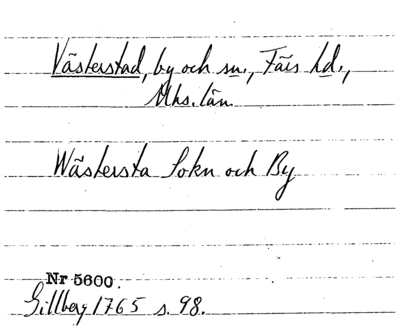 Västerstad, by och sn., Färs hd.,
Mhs. län.
Wästersta Sokn och By
Nr 5600.
Gillberg 1765 s. 98.